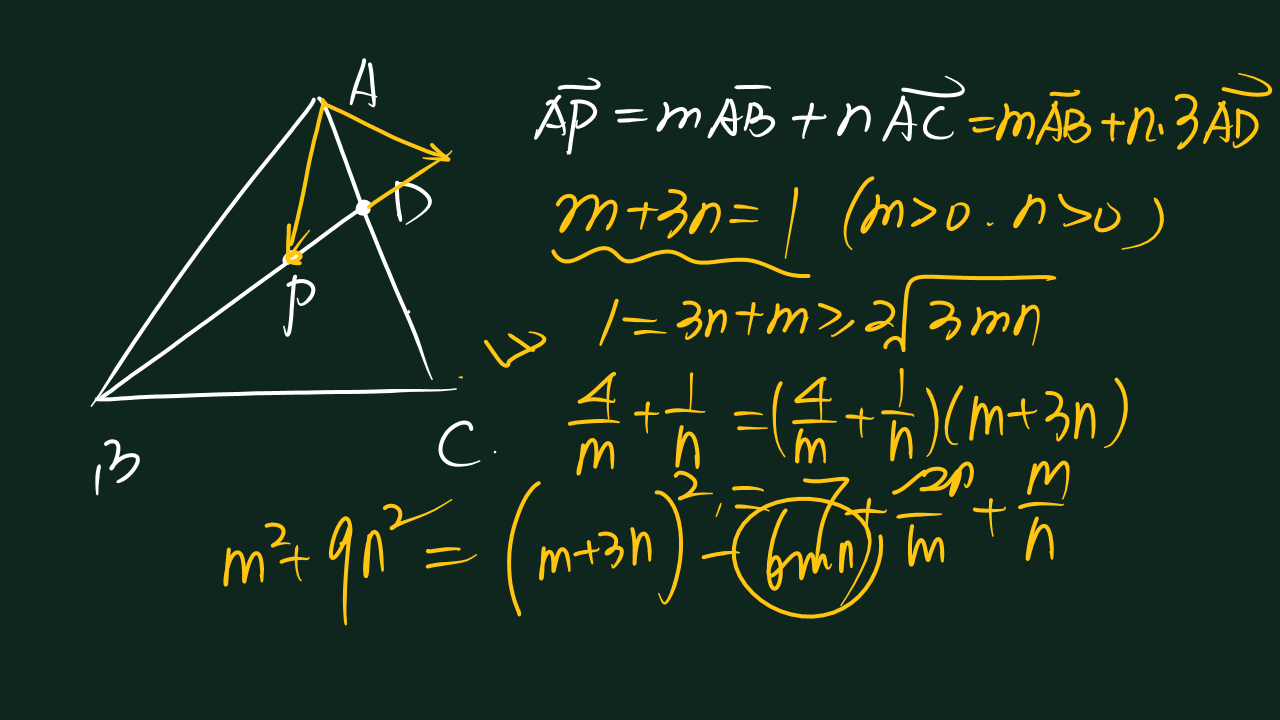 A
D
P
B
C
\vec{AP} = m\overline{AB} + n\vec{AC} = m\vec{AB} + n·3\vec{AD}
m+3n=1 (m>0. n>0)
1 = 3n+m ≥ 2√(3mn)
4/m + 1/n = (4/m + 1/n)(m+3n)
= 7 + /m + m/n
m²+9n² = (m+3n)² - 6mn